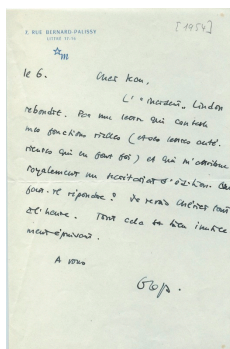 7, RUE BERNARD-PALISSY
LITTRÉ 17-16
[1954]
le 6.
Cher Jean.
L' " incident " Lindon
rebondit. Par une lettre qui conteste
mes fonctions réelles (et des lettres anté-
rieures qui en font foi) et qui m'attribue
royalement un secrétariat d'édition.
faut-il répondre ? Je verrai
à l'heure. Tout cela est bien inutile
ment épuisant.
A vous